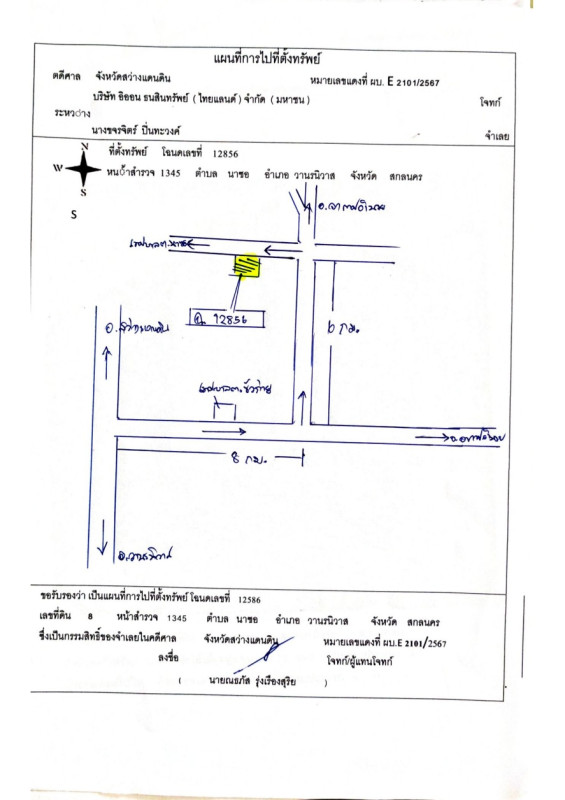 แผนที่การไปที่ตั้งทรัพย์
คดีศาล จังหวัดสว่างแดนดิน หมายเลขแดงที่ ผบ. E 2101/2567
บริษัท อิออน ธนสินทรัพย์ ( ไทยแลนด์ ) จำกัด ( มหาชน ) โจทก์
ระหว่าง
นางขจรจิตร์ ปิ่นทะวงค์ จำเลย
N
ที่ตั้งทรัพย์ โฉนดเลขที่ 12856
W
หน้าสำรวจ 1345 ตำบล นาซอ อำเภอ วานรนิวาส จังหวัด สกลนคร
S
S
ฉ. 12856
6 กม.
8 กม.
ขอรับรองว่า เป็นแผนที่การไปที่ตั้งทรัพย์ โฉนดเลขที่ 12586
เลขที่ดิน 8 หน้าสำรวจ 1345 ตำบล นาซอ อำเภอ วานรนิวาส จังหวัด สกลนคร
ซึ่งเป็นกรรมสิทธิ์ของจำเลยในคดีศาล จังหวัดสว่างแดนดิน หมายเลขแดงที่ ผบ.E 2101/2567
ลงชื่อ โจทก์/ผู้แทนโจทก์
( นายณธภัส รุ่งเรืองสุริย )